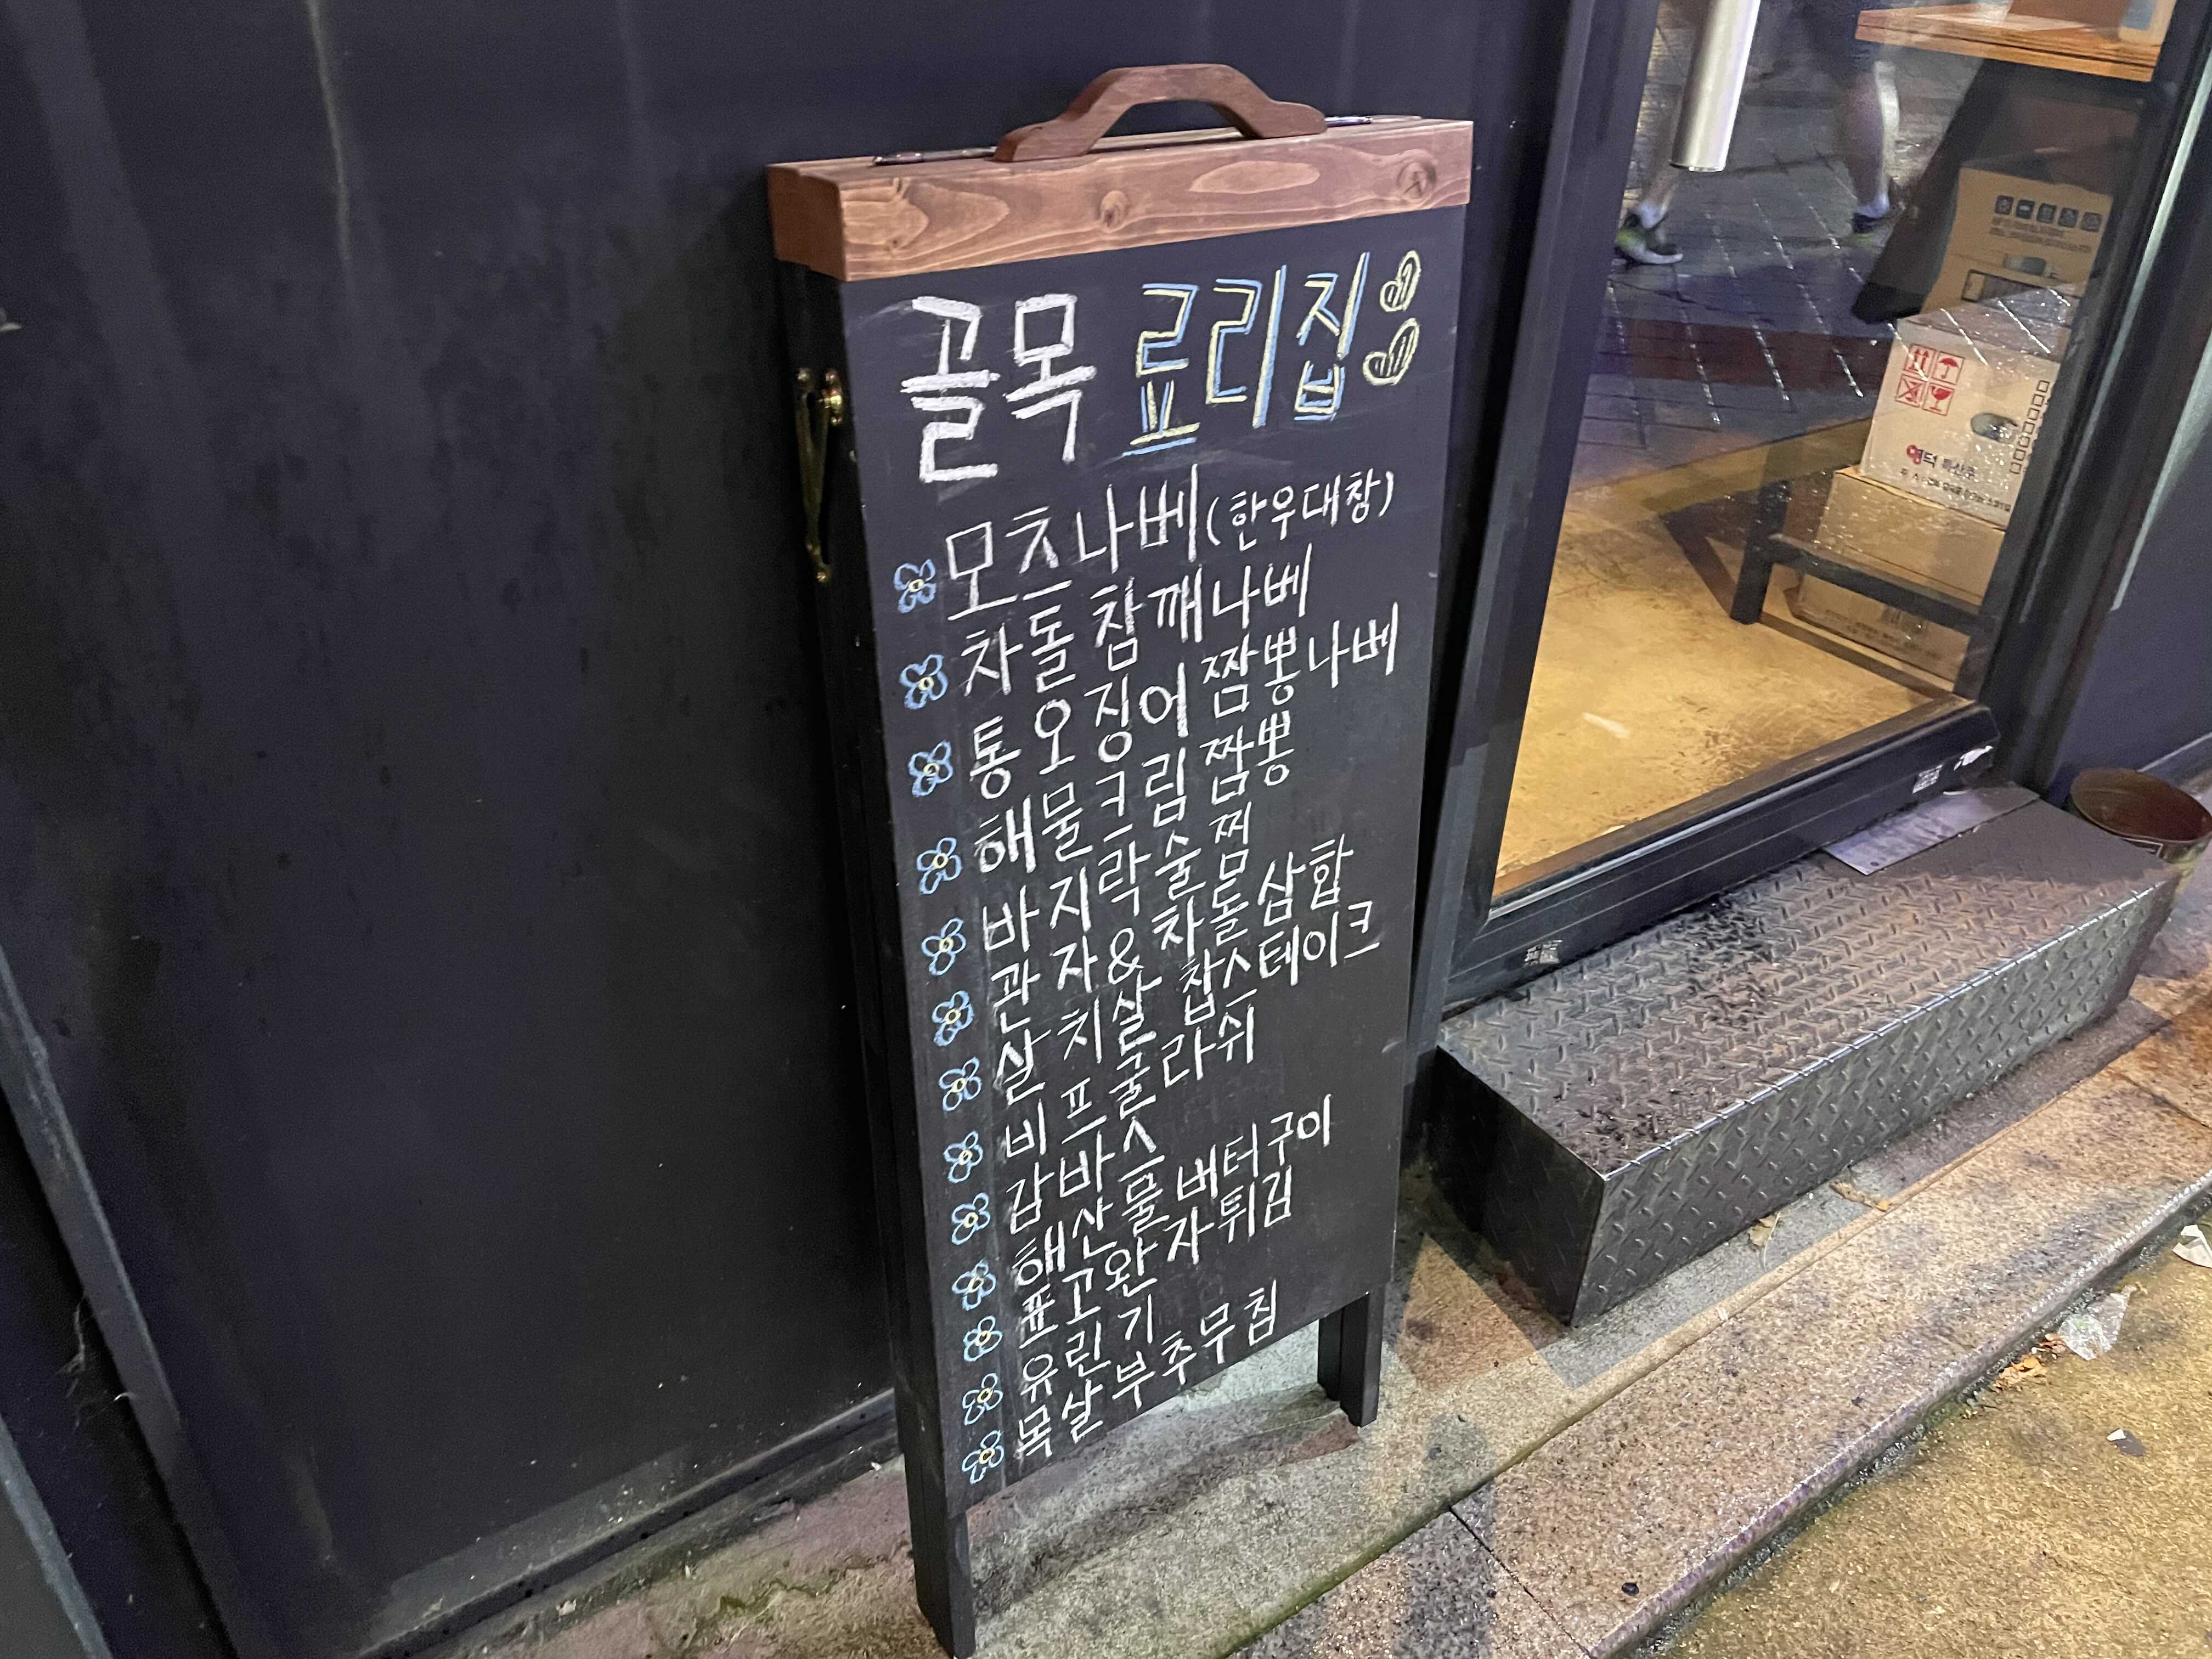 골목 요리집
모츠나베(한우대창)
차돌참깨나베
통오징어짬뽕나베
해물크림짬뽕
바지락술찜
관자&차돌삼합
살치살찹스테이크
비프굴라쉬
감바스
해산물버터구이
표고완자튀김
유린기
목살부추무침
영덕 특산주